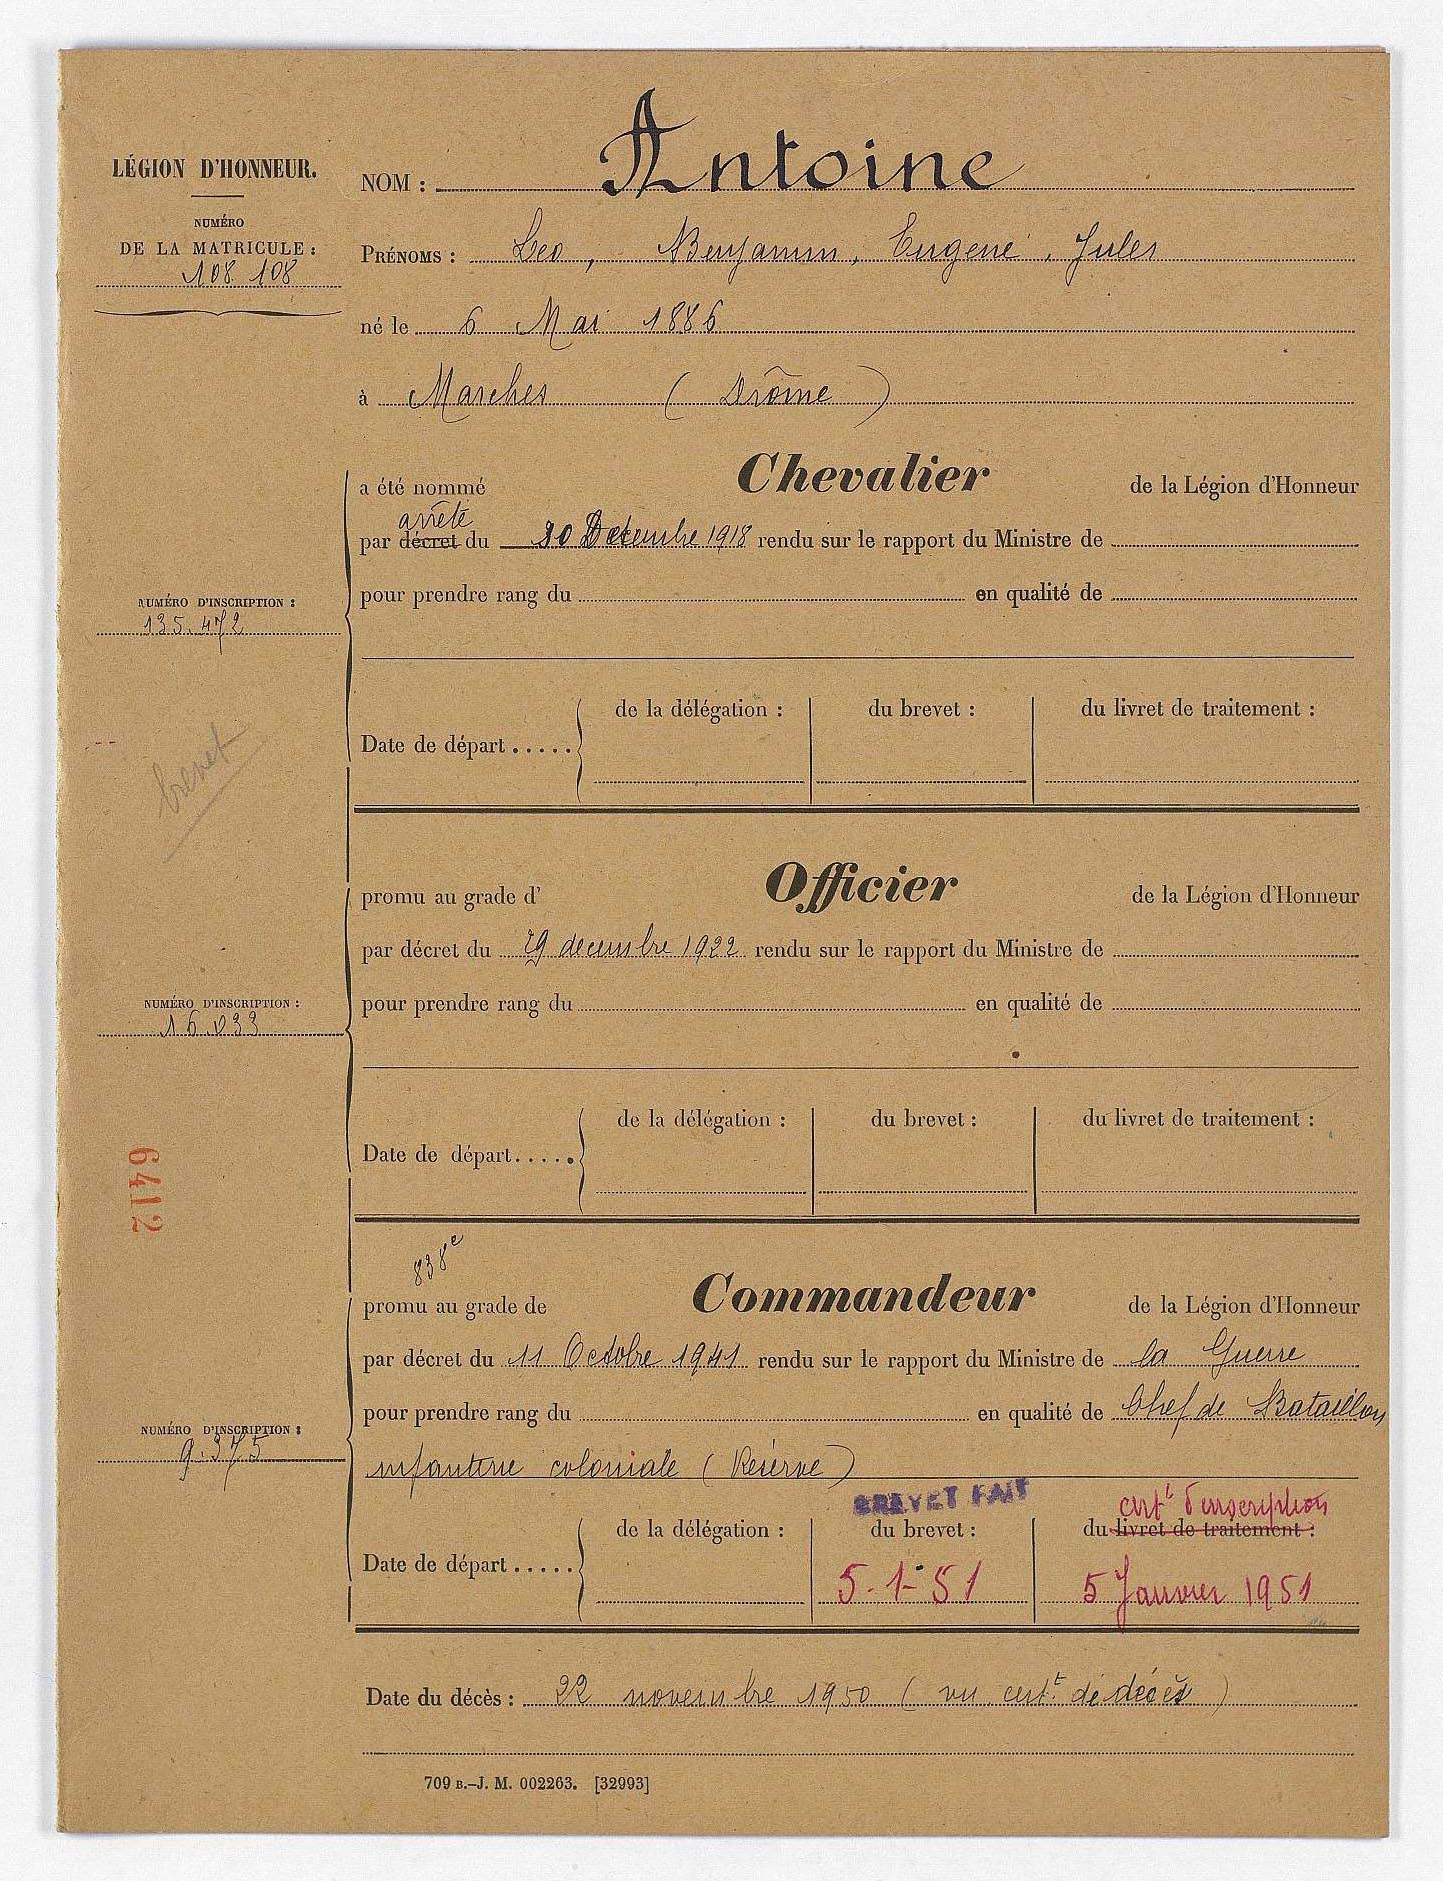 LÉGION D'HONNEUR.
NUMÉRO
DE LA MATRICULE :
108.108
NOM : Antoine
PRÉNOMS : Leo, Benjamin, Eugene, Jules
né le 6 Mai 1886
à Marches (Drôme)
a été nommé Chevalier de la Légion d'Honneur
arrêté
par décret du 20 Decembre 1918 rendu sur le rapport du Ministre de
pour prendre rang du en qualité de
NUMÉRO D'INSCRIPTION :
135.472
de la délégation : du brevet : du livret de traitement :
Date de départ .....
brevet
promu au grade d' Officier de la Légion d'Honneur
par décret du 29 decembre 1922 rendu sur le rapport du Ministre de
pour prendre rang du en qualité de
NUMÉRO D'INSCRIPTION :
16.033
de la délégation : du brevet : du livret de traitement :
Date de départ .....
6412
838e
promu au grade de Commandeur de la Légion d'Honneur
par décret du 11 Octobre 1941 rendu sur le rapport du Ministre de la Guerre
pour prendre rang du en qualité de Chef de Bataillon
NUMÉRO D'INSCRIPTION :
9.375
infanterie coloniale (Réserve)
BREVET FAIT
cert^t d'inscription
de la délégation : du brevet : du livret de traitement :
Date de départ ..... 5-1-51 5 Janvier 1951
Date du décès : 22 novembre 1950 (vu cert^t de décès)
709 B.-J. M. 002263. [32993]